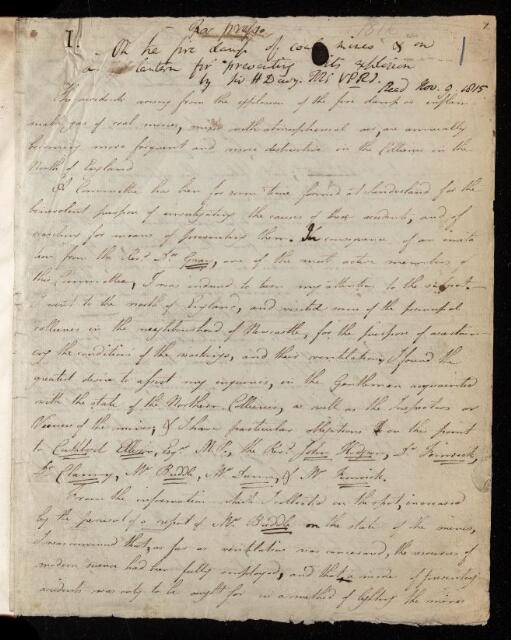 For press
1.
On the fire damp of coal mines & on
a lantern for preventing its explosion
by Sir H Davy. VPRI.
Read Nov. 9. 1815
The accidents arising from the explosion of the fire damp or inflam
mable gas of coal mines, mixed with atmospherical air, are annually
becoming more frequent and more destructive in the Collieries in the
North of England
A Committee has been for some time formed at Sunderland for the
benevolent purpose of investigating the causes of these accidents, and of
searching for means of preventing them. In consequence of an invita
tion from the Revd. Dr. Gray, one of the most active members of
this Committee, I was induced to turn my attention to the subject.
I went to the north of England, and visited some of the principal
collieries in the neighbourhood of Newcastle, for the purpose of ascertain
ing the condition of the workings, and their ventilation, I found the
greatest desire to assist my inquiries, in the Gentlemen acquainted
with the state of the Northern Collieries, as well as the Inspectors or
Viewers of the mines, & I have particular obligations on this point
to Cuthbert Ellison, Esqr. M.P., the Revd. John Hodgson, Dr.
Dr. Clanny, Mr. Buddle, Mr. Dunn, & Mr. Fenwick.
From the information which I collected on the spot, increased
by the perusal of a report of Mr. Buddle on the state of the mines,
I was convinced that, as far as ventilation was concerned, the resources of
modern science had been fully employed, and that a mode of preventing
accidents was only to be sought for in a method of lighting the mines